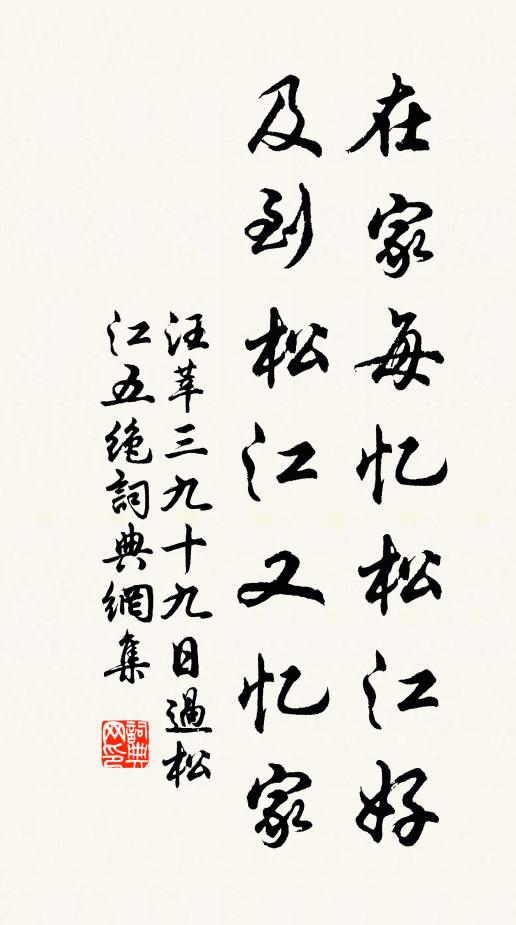 在家每忆松江好
及到松江又忆家
汪莘三九十九日過松
江五绝詞典網集
詞典網印